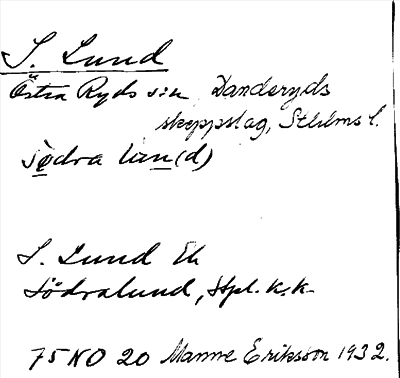 S. Lund
Östra Ryds s:n Danderyds
skeppslag, Sthlms l.
södra lun(d)
S. Lund Ek
Södralund, Stpl. k.k.
75 NO 20 Manne Eriksson 1932.